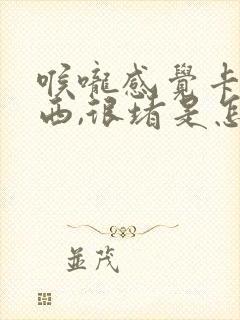 喉嚨感覺卡
西,很堵是怎
並茂